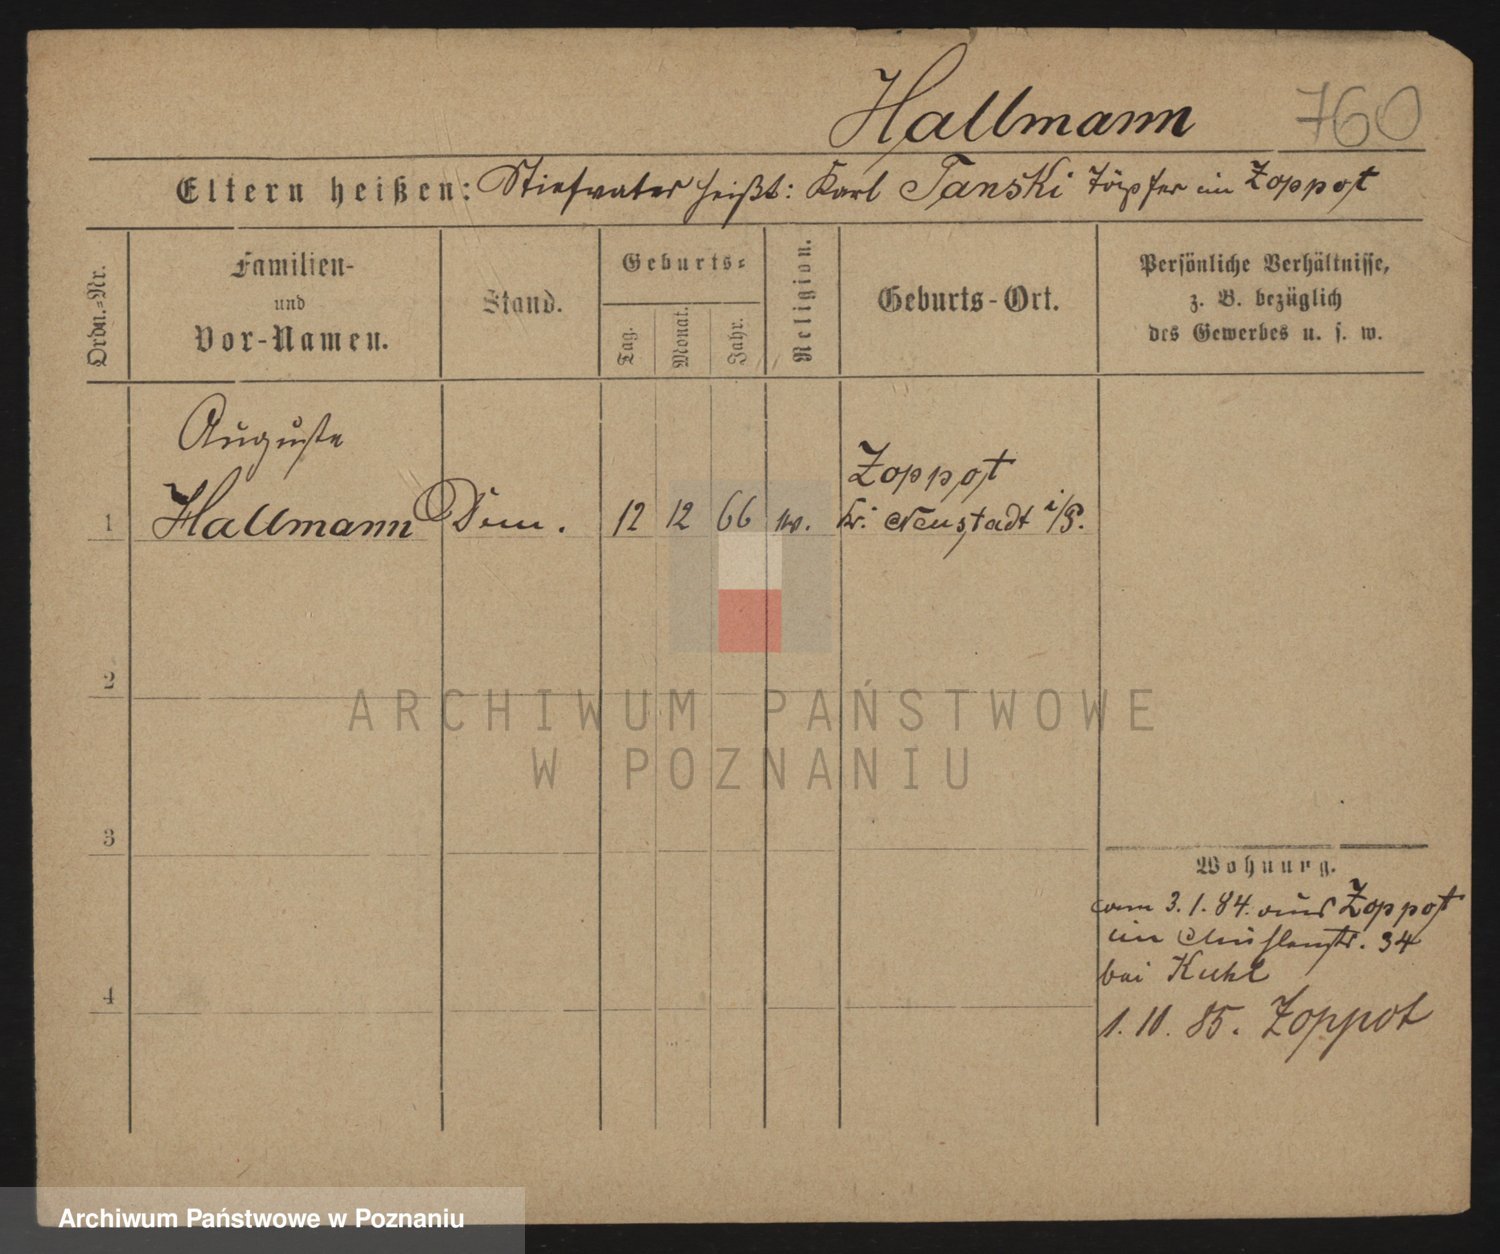 Hallmann 760
Eltern heißen: Stiefvater heißt: Karl Tanski Töpfer in Zoppot
Ordn.-Nr.
Familien-
und
Vor-Namen.
Stand.
Geburts-
Tag.
Monat.
Jahr.
Religion.
Geburts-Ort.
Persönliche Verhältnisse,
z. B. bezüglich
des Gewerbes u. s. w.
Auguste Zoppot
1 Hallmann 12 12 66 Kr. Neustadt i/P.
2
3
4
Wohnung.
am 3.1.84. aus Zoppot
in Mühlenstr. 34
bei Kuhl
1.10.85. Zoppot
ARCHIWUM PAŃSTWOWE
W POZNANIU
Archiwum Państwowe w Poznaniu